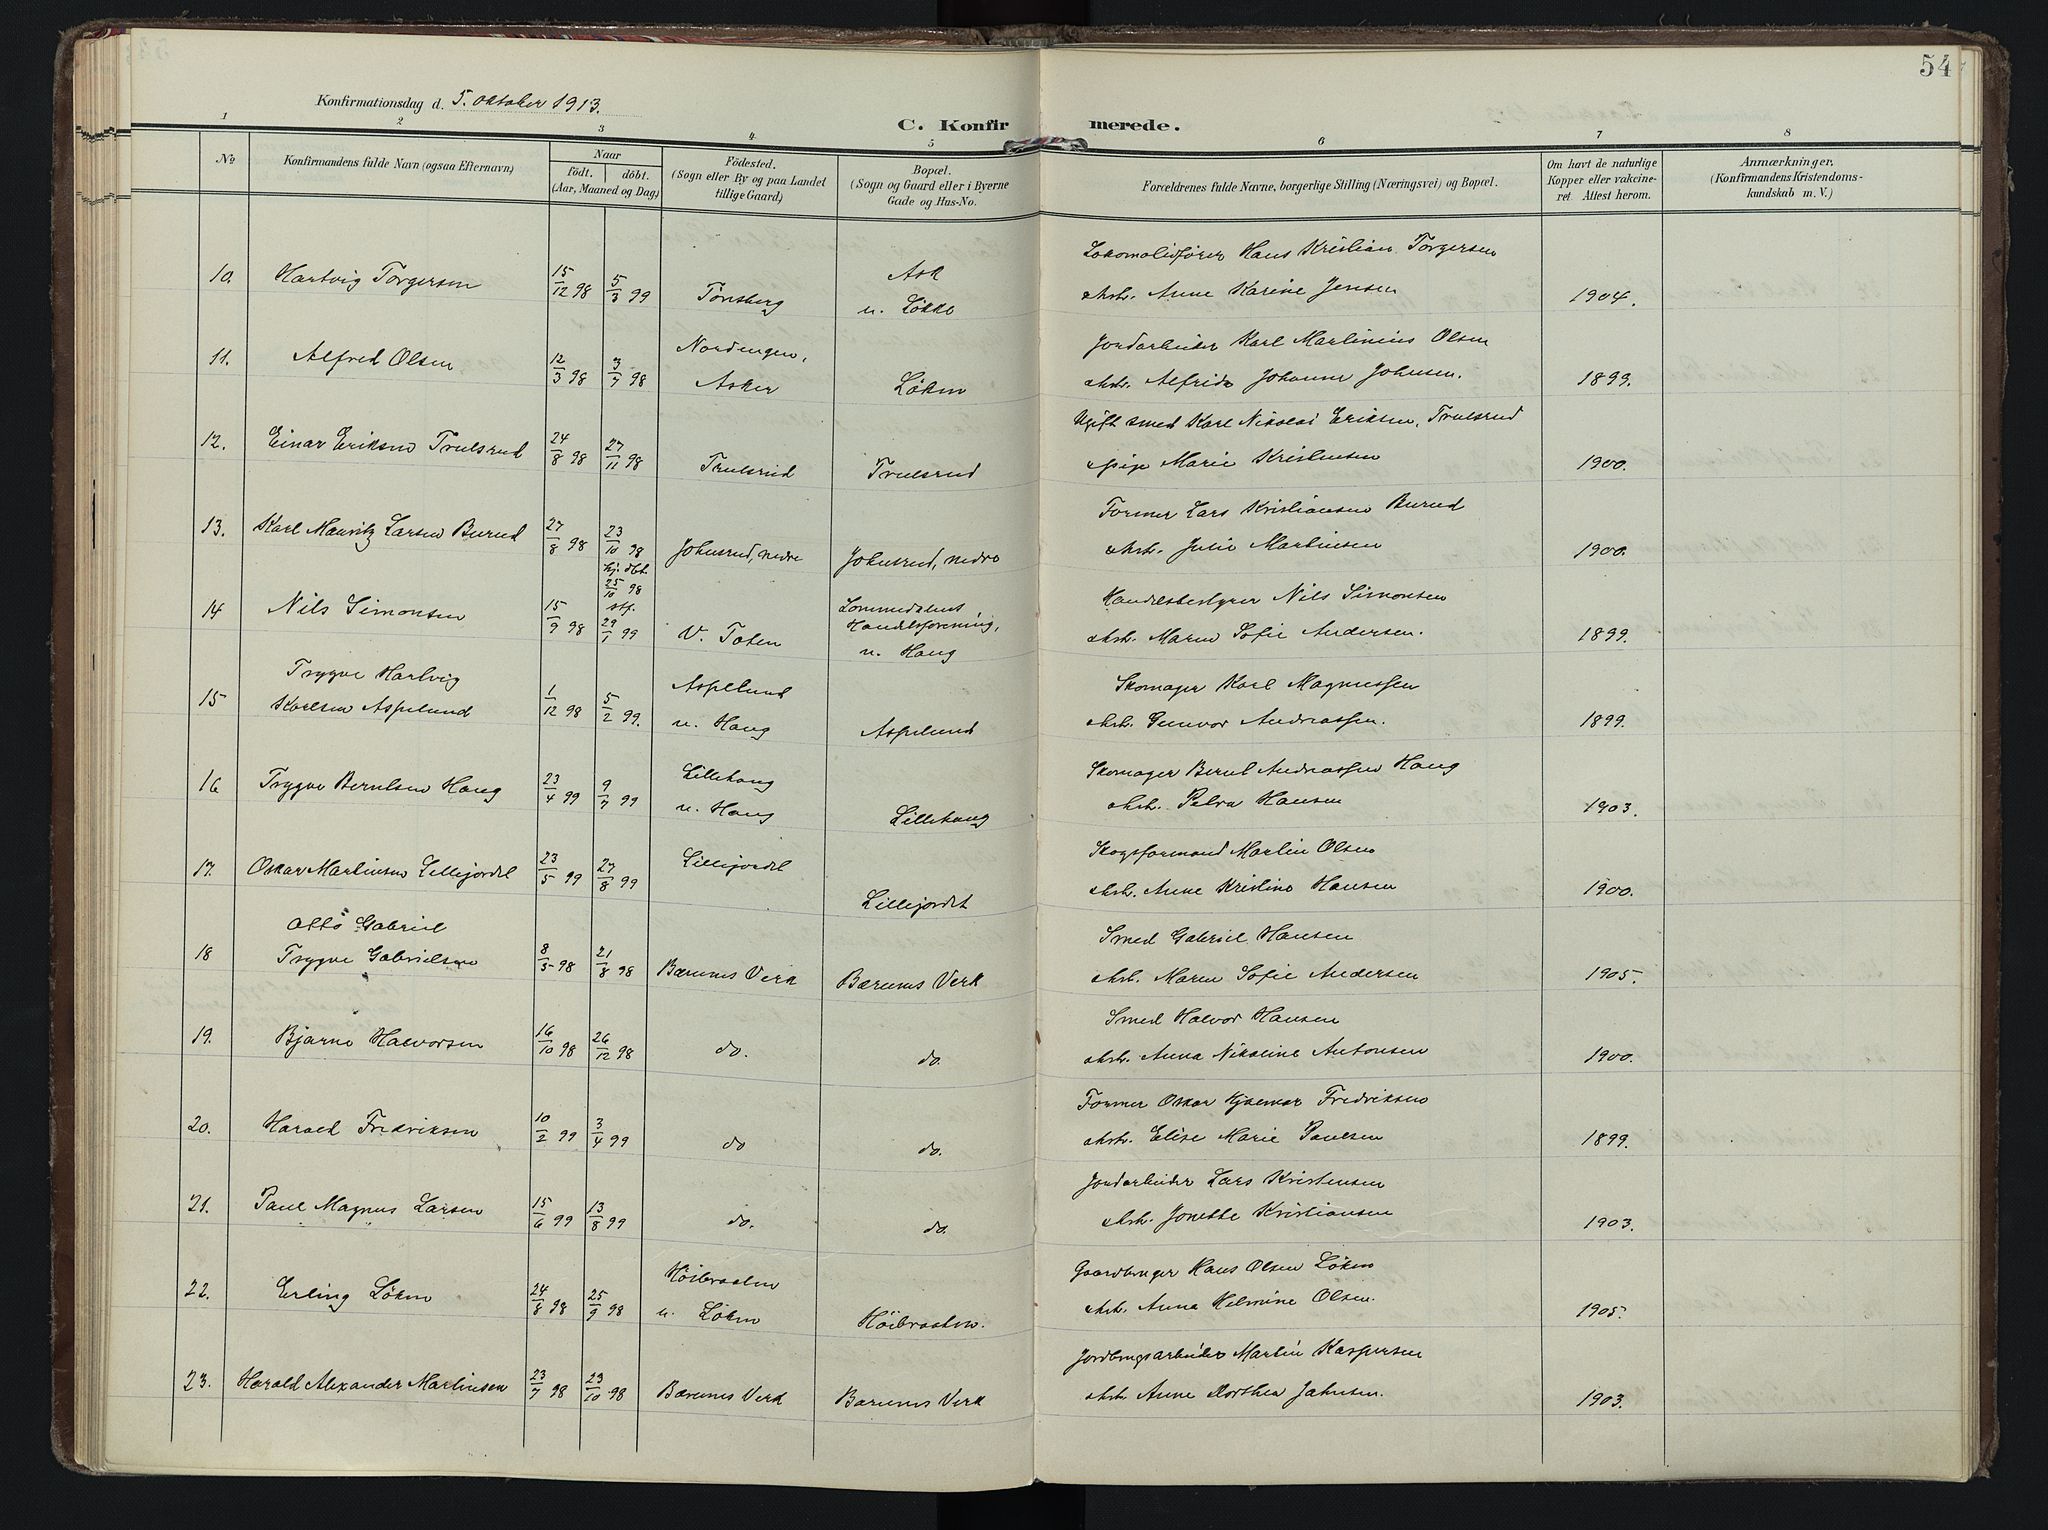 54
Konfirmationsdag d. 5. oktober 1913.
C. Konfirmerede.
1 2 3 4 5 6 7 8
No
Konfirmandens fulde Navn (ogsaa Efternavn)
Naar
födt. döbt.
(Aar, Maaned og Dag)
Födested.
(Sogn eller By og paa Landet
tillige Gaard)
Bopæl.
(Sogn og Gaard eller i Byerne
Gade og Hus-No.
Forældrenes fulde Navne, borgerlige Stilling (Næringsvei) og Bopæl.
Om havt de naturlige
Kopper eller vakcine-
ret. Attest herom.
Anmærkninger.
(Konfirmandens Kristendoms-
kundskab m. V.)
10. Hartvig Torgersen 15/12 98 5/3 99 Tønsberg Ask
u. Løkke
Lokomotivfører Hans Kristian Torgersen
Anne Karine Jensen 1904.
11. Alfred Olsen 12/3 98 3/7 98 Nordengen,
Asker Løken
Jordarbeider Karl Martinius Olsen
Alfride Johanne Johnsen. 1899.
12. Einar Eriksen Trulsrud 24/8 98 27/11 98 Trulsrud Trulsrud
Ugift smed Karl Nikolai Eriksen, Trulsrud
pige Marie Kristensen 1900.
13. Karl Mauritz Larsen Burud 27/8 98 23/10 98
hj. dbt.
25/10 98
stf.
Johnsrud, nedre Johnsrud, nedre
Former Lars Kristiansen Burud
Julie Martinsen 1900.
14 Nils Simonsen 15/9 98 29/1 99 V. Toten Lommedalens
Handelsforening,
u. Haug
Handelsbestyrer Nils Simonsen
Maren Sofie Andersen. 1899.
15 Trygve Hartvig
Karlsen Aspelund 1/12 98 5/2 99. Aspelund
u. Haug Aspelund
Skomager Karl Magnussen
Gunvor Andreassen. 1899.
16 Trygve Berntsen Haug 23/4 99 9/7 99 Lillehaug
u. Haug Lillehaug
Skomager Bernt Andreassen Haug
Petra Hansen 1903.
17. Oskar Martinsen Lillejordet 23/5 99 27/8 99 Lillejordet Lillejordet
Skogsformand Martin Olsen
Anne Kristine Hansen 1900.
18 Otto Gabriel
Trygve Gabrielsen 8/5 98 21/8 98 Bærums Verk Bærums Verk
Smed Gabriel Hansen
Maren Sofie Andersen 1905.
19. Bjarne Halvorsen 16/10 98 26/12 98 do. do.
Smed Halvor Hansen
Anna Nikoline Antonsen 1900.
20. Harald Fredriksen 10/2 99 3/4 99 do do.
Former Oskar Hjalmar Fredriksen
Elise Marie Paulsen 1899.
21. Paul Magnus Larsen 15/6 99 13/8 99 do. do.
Jordarbeider Lars Kristensen
Jonette Kristiansen 1903.
22. Erling Løken 24/8 98 25/9 98 Høibraaten
u. Løken Høibraaten.
Gaardbruger Hans Olsen Løken
Anna Helmine Olsen. 1905.
23. Harald Alexander Martinsen 23/7 98 23/10 98 Bærums Verk Bærums Verk
Jordbrugsarbeider Martin Kaspersen
Anne Dorthea Jahnsen. 1903.